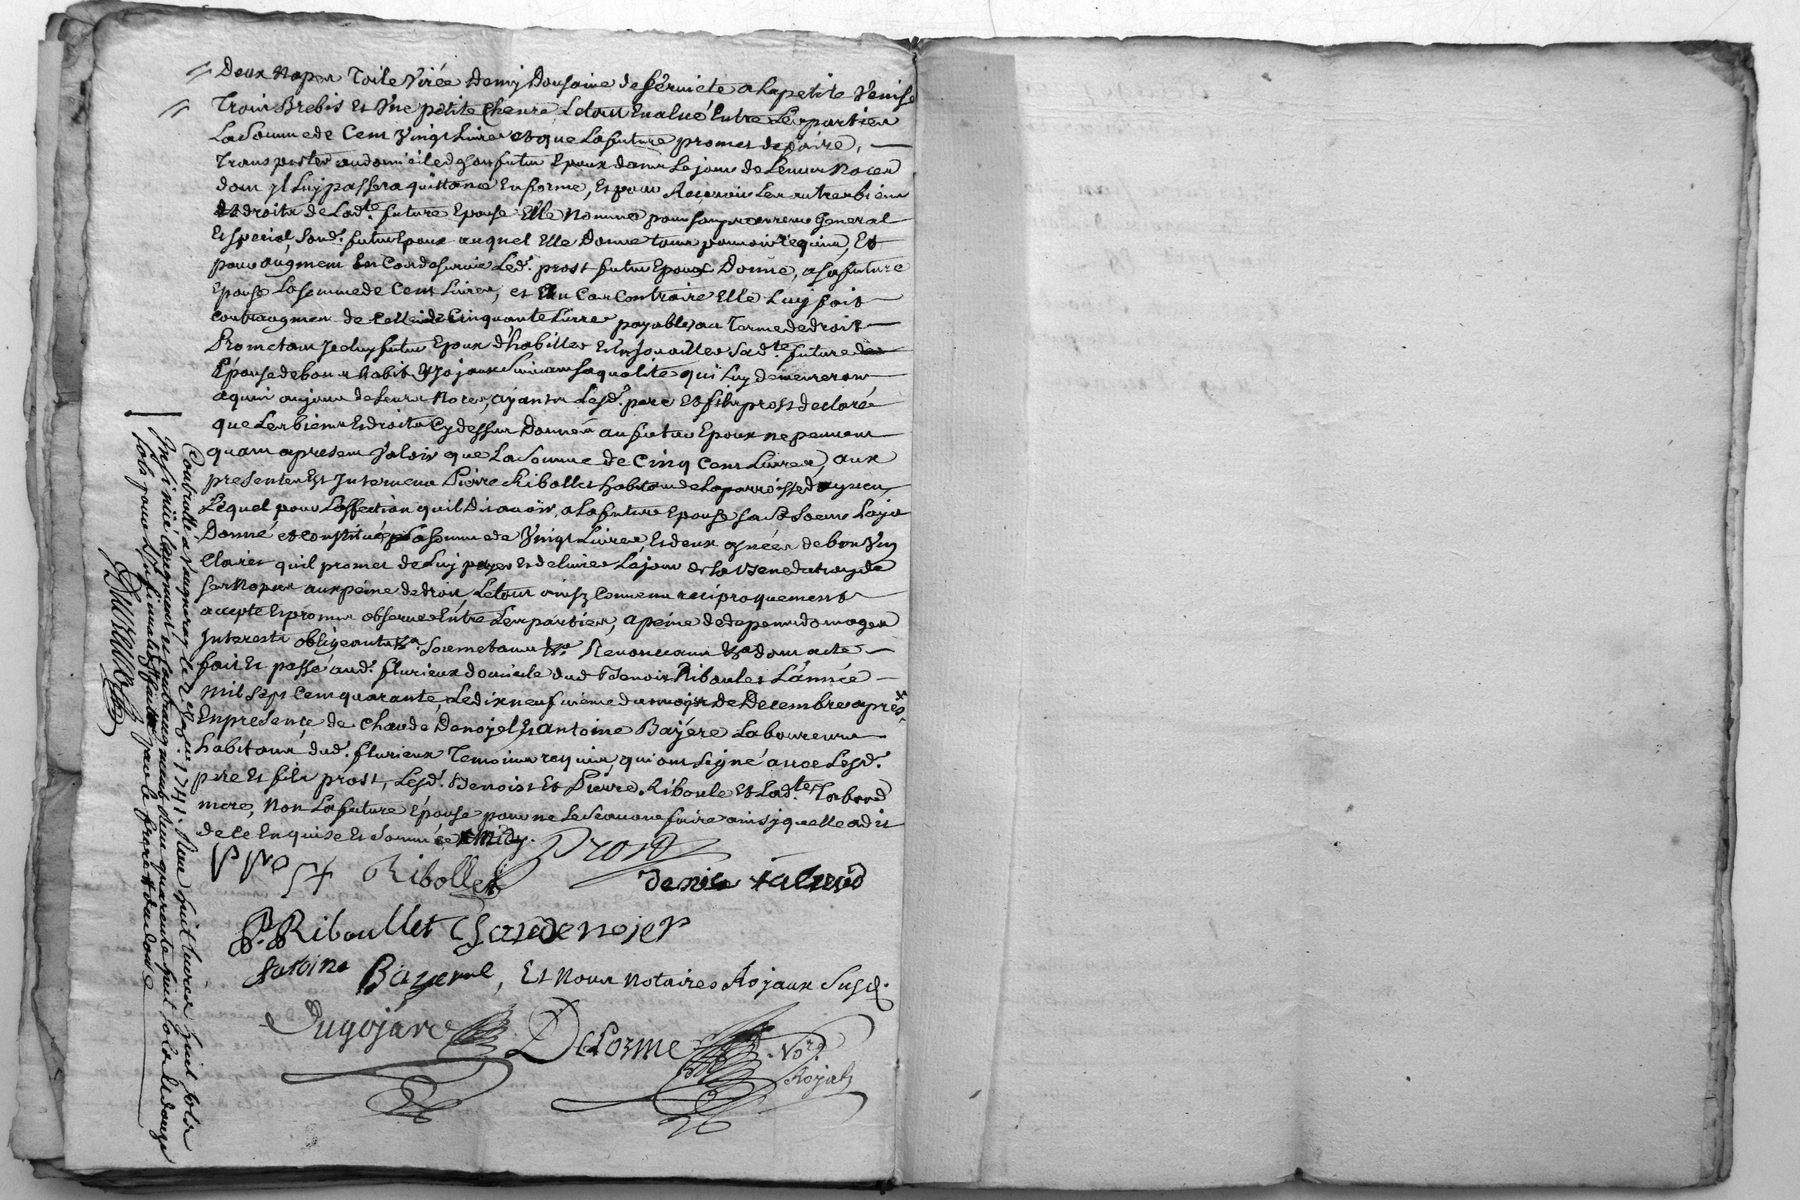 Deux Napes Toile Virée Demy Dousaine de serviete a la petite Venise
Trois Brebis et Vne petite Cheure Le tout Evalué Entre Les parties
La somme de Cent Vingt Liures et que La future promet de faire,
Transporter au domicile de son futur Epoux dans Le jour de Leurs Noces
dont yl Luy passera quittance En forme, Et pour Receuoir Les autres biens
Et droits de Lad.te future Epouse Elle Nomme pour son procureur General
Et special Sond. futur Epoux auquel Elle Donne tous pouuoirs requis, Et
pour augment En Cas de suruie Led. prost futur Epoux Donne, a sa future
Epouse La somme de Cent Liures, et Au Cas Contraire Elle Luy fait
contraugmen de Celle de Cinquante Liures payables au Terme de droit
Prometant Iceluy futur Epoux d'habiller et Enjouailler Sad.te future
Epouse de bons habits et Jojaux suiuant sa qualité qui Luy demeureront
aquis au jour de Leurs Noces, ayants Lesd. pere et fils prost declaré
que Les biens Et droits Cy dessus Donnés au futur Epoux ne peuuent
quant apresent Valoir que La somme de Cinq Cent Liures, aux
presentes Est Interuenu Pierre Ribollet habitant de La parroisse d
Lequel pour Laffection quil Dit auoir a La future Epouse sa soeur Luy a
Donné et constitué La somme de Vingt Liures Et deux asnées de bon Vin
Clairet quil promet de Luy payer Et deliurer Le jour de La Benediction de
ses Nopces aux peine de droit, Le tout ainsy Conuenu reciproquement
accepté Et promis obseruer Entre Les parties, a peine de depens domages
Interests obligeants &a Soumetants &a Renonceants &a dont acte
fait Et passé aud. flurieux domicile dud Benoist Riboulet L'année
Mil sept Cent quarante Le dix neuf uieme du mois de Decembre apres
En presence de Claude Denoyel Et antoine Bajére Laboureurs
habitants dud. flurieux Temoins requis, qui ont signé auec Lesd.
pere Et fils prost, Lesd. Benoist Et Pierre Riboule Et Lad.te Tabard
mere, Non La future Epouse pour ne Le Scauoir faire ainsy quelle a dit
de ce Enquise Et Sommée
P Prost Ribollet Prost
denise tabard
P. Riboullet Claude noier
Antoine Bayere, Et Nous Notaires Royaux Susd.
Dugojard Delorme No.re
Royal
Controllé a Vaugneray le 2e 1741. Reçu huit Liures huit sols
Insinüé Laugment et Contraugment Reçu quarente huit sols Et douze
sols pour Linsinuation